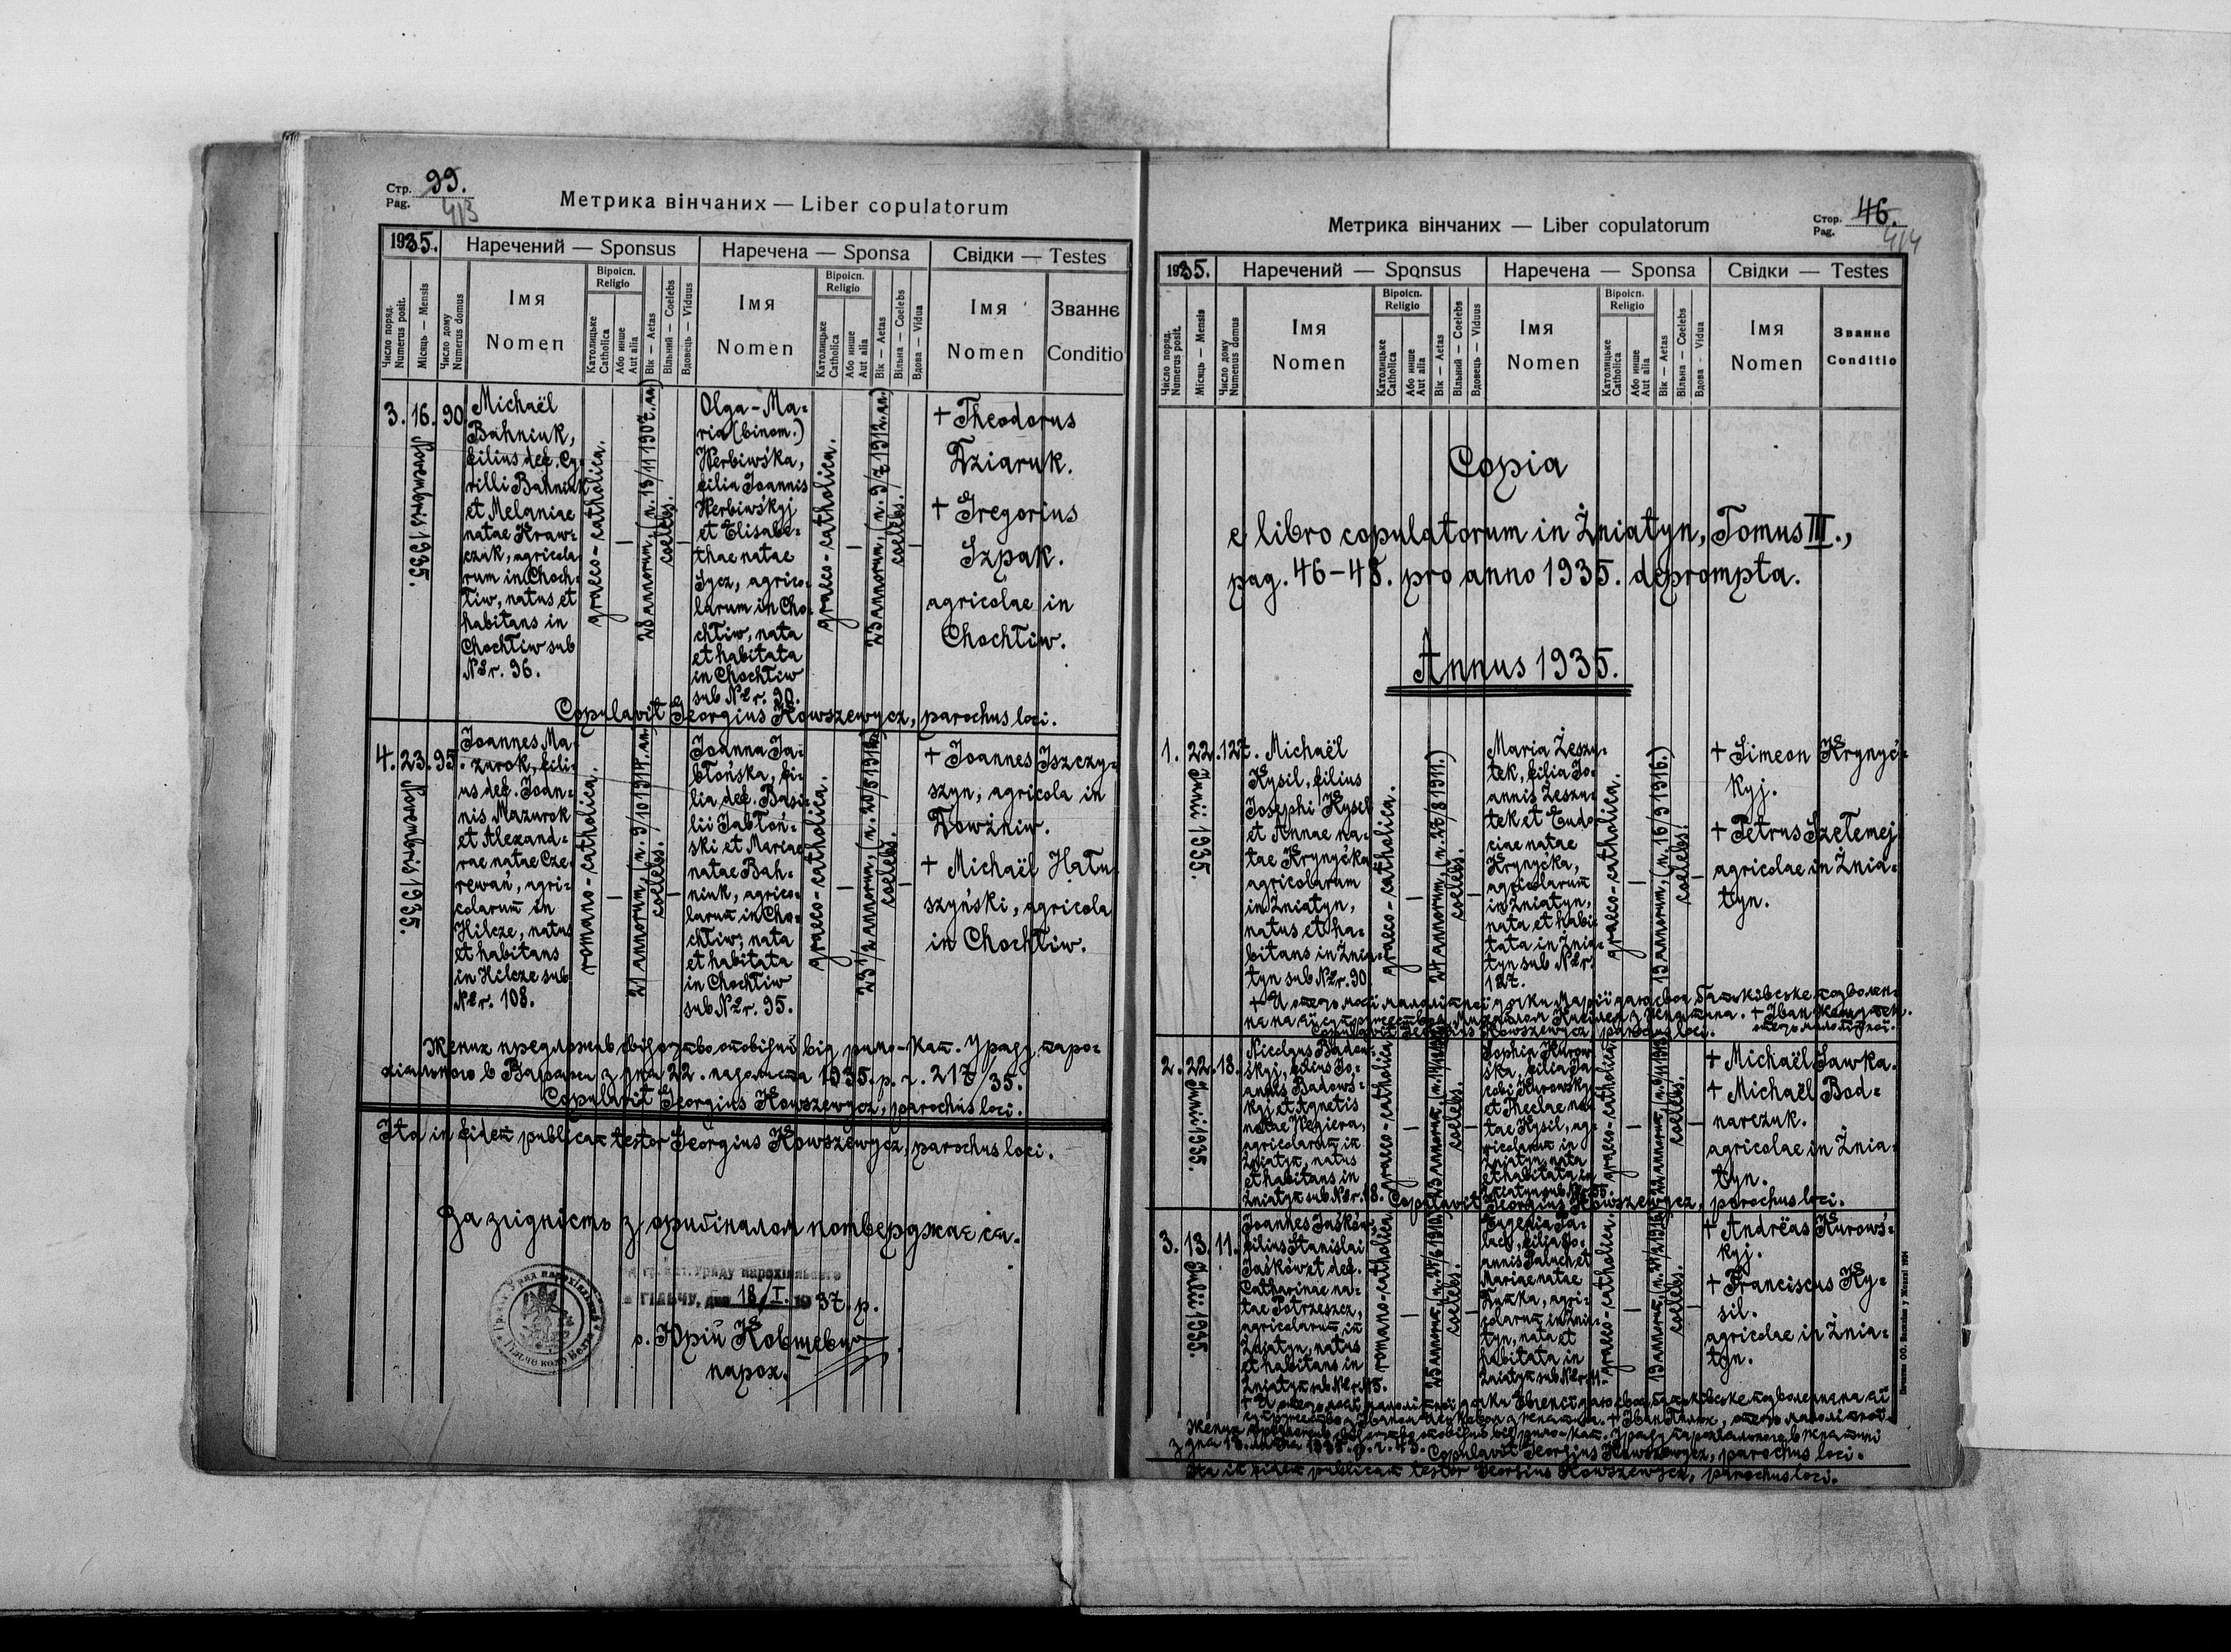 Стр. 99.
Pag. 413
Метрика вінчаних — Liber copulatorum
1935.
Наречений — Sponsus
Наречена — Sponsa
Свідки — Testes
Число поряд.
Numerus posit.
Місяць — Mensis
Число дому
Numerus domus
Імя
Nomen
Віроісп.
Religio
Католицьке
Catholica
Або инше
Aut alia
Вік — Aetas
Вільний — Coelebs
Вдовець — Viduus
Імя
Nomen
Віроісп.
Religio
Католицьке
Catholica
Або инше
Aut alia
Вік — Aetas
Вільна — Coelebs
Вдова — Vidua
Імя
Nomen
Званнє
Conditio
3.
16.
Novembris 1935.
90
Michaël
Bahniuk,
filius def. Cy-
rilli Bahniuk
et Melaniae
natae Kraw-
czuk, agricola-
rum in Choch-
łiw, natus et
habitans in
Chochłiw sub
Nr. 96.
graeco-catholica.
—
28 annorum, (n. 13/11 1907. an)
coelebs.
—
Olga-Ma-
ria (binom.)
Werbiwśka,
filia Joannis
Werbiwśkyj
et Elisabe-
thae natae
Sycz, agrico-
larum in Cho-
chłiw, nata
et habitata
in Chochłiw
sub Nr. 90.
graeco-catholica.
—
23 annorum, (n. 9/7 1912. an)
coelebs.
—
+ Theodorus
Dziaruk.
+ Gregorius
Szpak.
agricolae in
Chochłiw.
Copulavit Georgius Kowszewycz, parochus loci.
4.
23.
Novembris 1935.
95.
Joannes Ma-
zurok, fili-
us def. Joan-
nis Mazurok
et Alexand-
rae natae Cze-
rewań, agri-
colarum in
Hilcze, natus
et habitans
in Hilcze sub
Nr. 108.
romano-catholica.
—
21 annorum, (n. 9/10 1914. an)
coelebs.
—
Joanna Ja-
błońska, fi-
lia def. Basi-
lii Jabłoń-
ski et Mariae
natae Bah-
niuk, agrico-
larum in Cho-
chłiw, nata
et habitata
in Chochłiw
sub Nr. 95.
graeco-catholica.
—
23 1/2 annorum, (n. 20/5 1912)
coelebs.
—
+ Joannes Iszczy-
szyn, agricola in
Dowżniw.
+ Michaël Hału-
szyński, agricola
in Chochłiw.
Жених предложив свідоцтво оповідий від римо-кат. Уряду паро-
хіального в Варяжи з дня 22. падолиста 1935. р. ч. 217/35.
Copulavit Georgius Kowszewycz, parochus loci.
Ita in fidem publicam testor Georgius Kowszewycz, parochus loci.
За згідність з оригіналом потверджаєся.
Уряду парохіяльного
в ГІЛЬЧУ, дня 18/I. 1937. р.
о. Юрій Ковшевич
парох.
Метрика вінчаних — Liber copulatorum
Стор. 46.
Pag. 414
1935.
Наречений — Sponsus
Наречена — Sponsa
Свідки — Testes
Число поряд.
Numerus posit.
Місяць — Mensis
Число дому
Numerus domus
Імя
Nomen
Віроісп.
Religio
Католицьке
Catholica
Або инше
Aut alia
Вік — Aetas
Вільний — Coelebs
Вдовець — Viduus
Імя
Nomen
Віроісп.
Religio
Католицьке
Catholica
Або инше
Aut alia
Вік — Aetas
Вільна — Coelebs
Вдова - Vidua
Імя
Nomen
Званнє
Conditio
Copia
e libro copulatorum in Żniatyn, Tomus III.,
pag. 46-48. pro anno 1935. deprompta.
Annus 1935.
1.
22.
Junii 1935.
127.
Michaël
Kysil, filius
Josephi Kysel
et Annae na-
tae Krynyćka
agricolarum
in Żniatyn,
natus et ha-
bitans in Żnia-
tyn sub Nr. 90
graeco-catholica.
—
24 annorum, (n. 27/8 1911.)
coelebs.
—
Maria Żeszu-
tek, filia Jo-
annis Żeszu-
tek et Eudo-
ciae natae
Krynyćka,
agricolarum
in Żniatyn,
nata et habi-
tata in Żnia-
tyn sub Nr.
127.
graeco-catholica.
—
19 annorum, (n. 16/9 1916.)
coelebs.
—
+ Simeon Krynyć-
kyj.
+ Petrus Szełemej
agricolae in Żnia-
tyn.
Copulavit Georgius Kowszewycz, parochus loci.
2.
22.
Junii 1935.
18.
Nicolaus Badow-
śkyj, filius Jo-
annis Badowś-
kyj et Agnetis
natae Weziera,
agricolarum in
Żniatyn, natus
et habitans in
Żniatyn sub Nr. 18.
graeco-catholica
—
coelebs.
—
Sophia Kurow-
ska, filia Ja-
cobi Kurowśkyj
et Theclae na-
tae Kysil, ag-
ricolarum in
Żniatyn, nata
et habitata in
graeco-catholica
—
coelebs.
—
+ Michaël Sawka.
+ Michaël Bod-
narczuk.
agricolae in Żnia-
tyn.
Copulavit Georgius Kowszewycz, parochus loci.
3.
13.
Julii 1935.
11.
Joannes Jaśków,
filius Stanislai
Jaśków et def.
Catharinae na-
tae Potrzeszcz,
agricolarum in
Żniatyn, natus
et habitans in
Żniatyn sub Nr. 115.
romano-catholica
—
25 annorum, (n. 27/6 1910.)
coelebs.
—
Eugenia Pa-
luch, filia Jo-
annis Paluch et
Mariae natae
Dutka, agri-
colarum in Żnia-
tyn, nata et
habitata in
Żniatyn sub Nr. 11.
graeco-catholica.
—
coelebs.
—
+ Andrëas Kurowś-
kyj.
+ Franciscus Ky-
sil.
agricolae in Żnia-
tyn.
Copulavit Georgius Kowszewycz, parochus loci.
Ita in fidem publicam testor Georgius Kowszewycz, parochus loci.